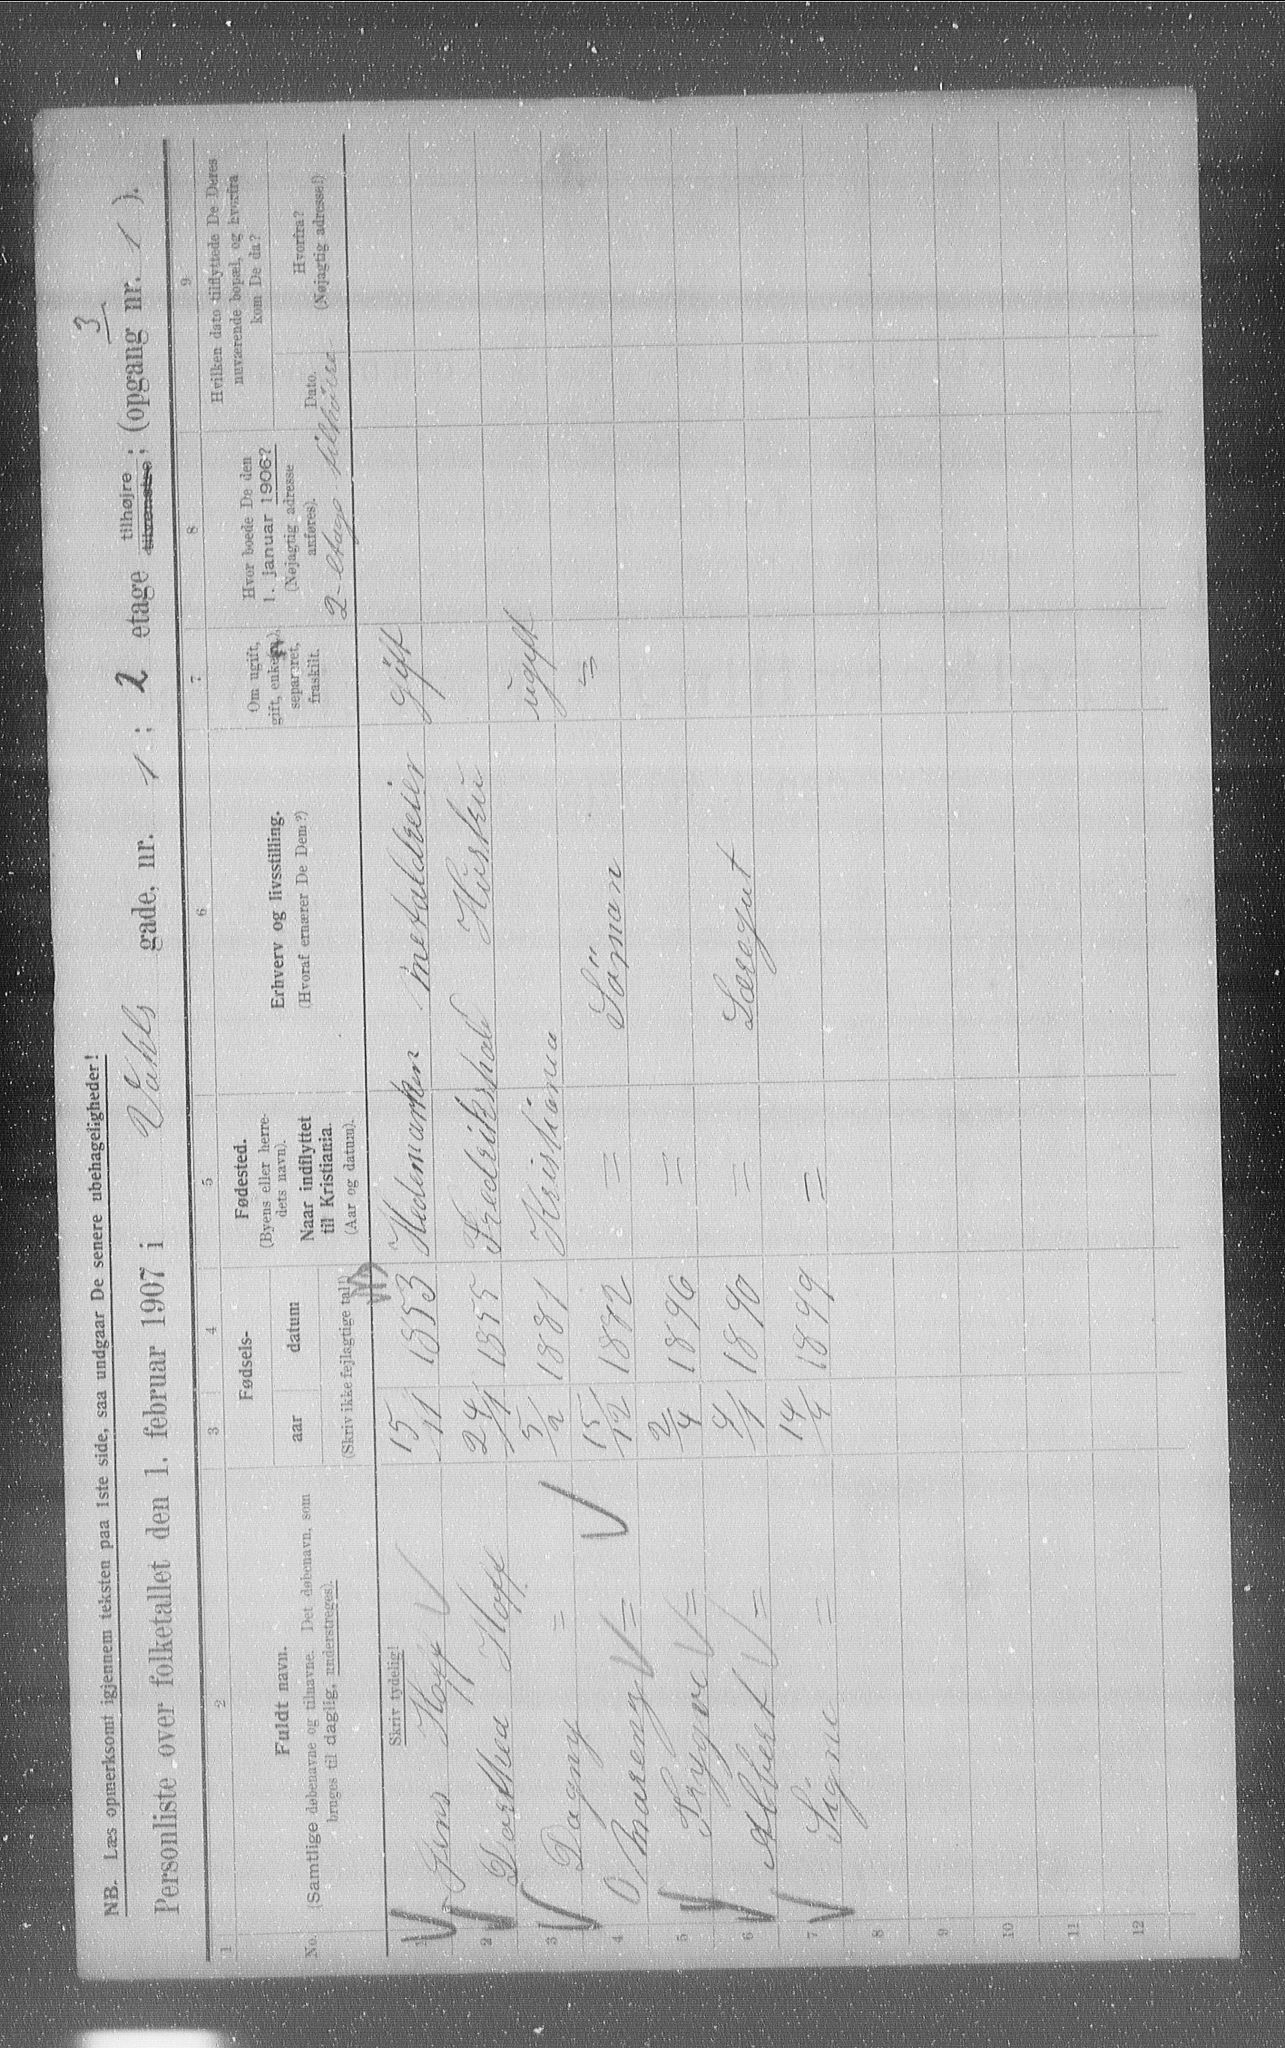 NB. Læs opmerksomt igjennem teksten paa 1ste side, saa undgaar De senere ubehageligheder!
3
Personliste over folketallet den 1. februar 1907 i Vahls gade, nr. 1 ; 2 etage tilhøjre tilvenstre ; (opgang nr. 1 ).
1 2 3 4 5 6 7 8 9
No.
Fuldt navn.
(Samtlige døbenavne og tilnavne. Det døbenavn, som
bruges til daglig, understreges).
Skriv tydelig!
Fødsels-
aar datum
(Skriv ikke fejlagtige tal!)
Fødested.
(Byens eller herre-
dets navn).
Naar indflyttet
til Kristiania.
(Aar og datum).
Erhverv og livsstilling.
(Hvoraf ernærer De Dem?)
Om ugift,
gift,
separeret,
fraskilt.
Hvor boede De den
1. januar 1906?
(Nøjagtig adresse
anføres).
Hvilken dato tilflyttede De Deres
nuværende bopæl, og hvorfra
kom De da?
Dato.
Hvorfra?
(Nøjagtig adresse!)
2- etage tilhöire
1 Jens Hoff 15/11 1853 Hedemarken metaldreier gift
2 Dorthea Hoff 24/1 1855 Fredrikshald Hustru
3 Dagny = 5/2 1881 Kristiania ugift
4 = 15/12 1882 = Söman =
5 Trygve = 2/4 1896 =
6 Albert = 4/1 1890 = Læregut
7 Signe = 14/4 1899 =
8
9
10
11
12